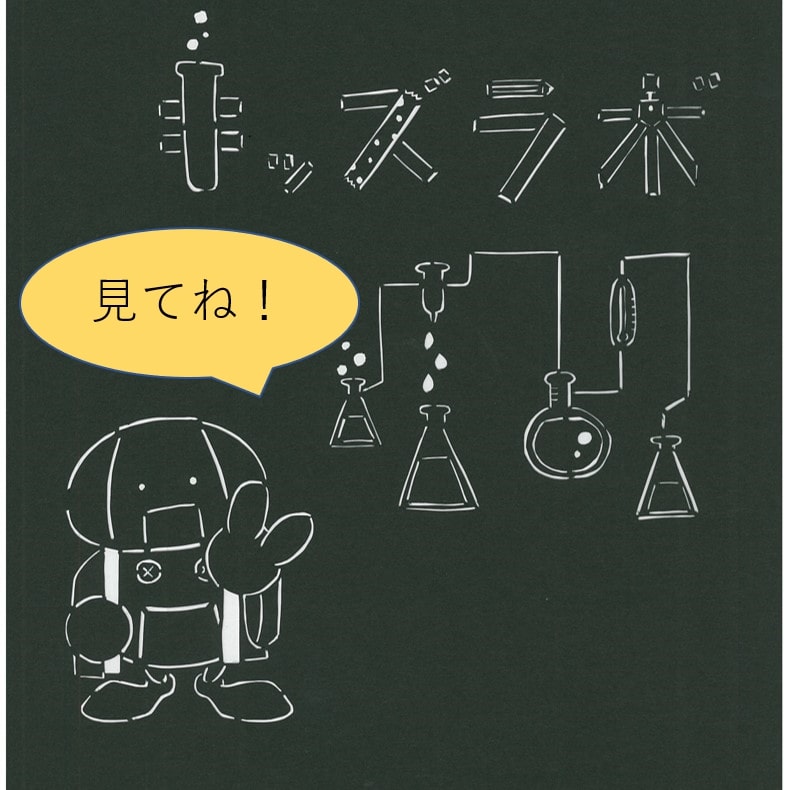 キッズラボ
見てね！